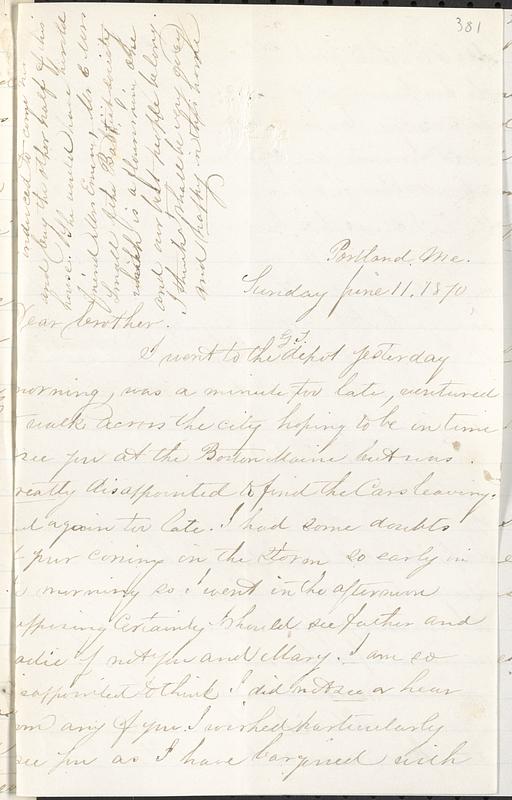 381
Portland, Me.
Sunday June 11, 1870,
Dear brother.
I went to the G.T. depot yesterday
morning, was a minute too late, ventured
walk across the city hoping to be in time
see you at the Boston Maine but was
greatly disappointed to find the Cars leaving.
again too late. I had some doubts
your coming in the storm so early in
morning so I went in the afternoon
supposing certainly I should see father and
adie if not you and Mary. I am so
disappointed to think I did not see or hear
from any of you. I wished particularly
see you as I have bargined with
induced to come
and buy the other half of his
house. We would have
friend Mrs Emery, Mr & Mrs
Small of the Baptist society
which is a flourishing one
and our best people belong.
I think I shall be very good
and happy in this house